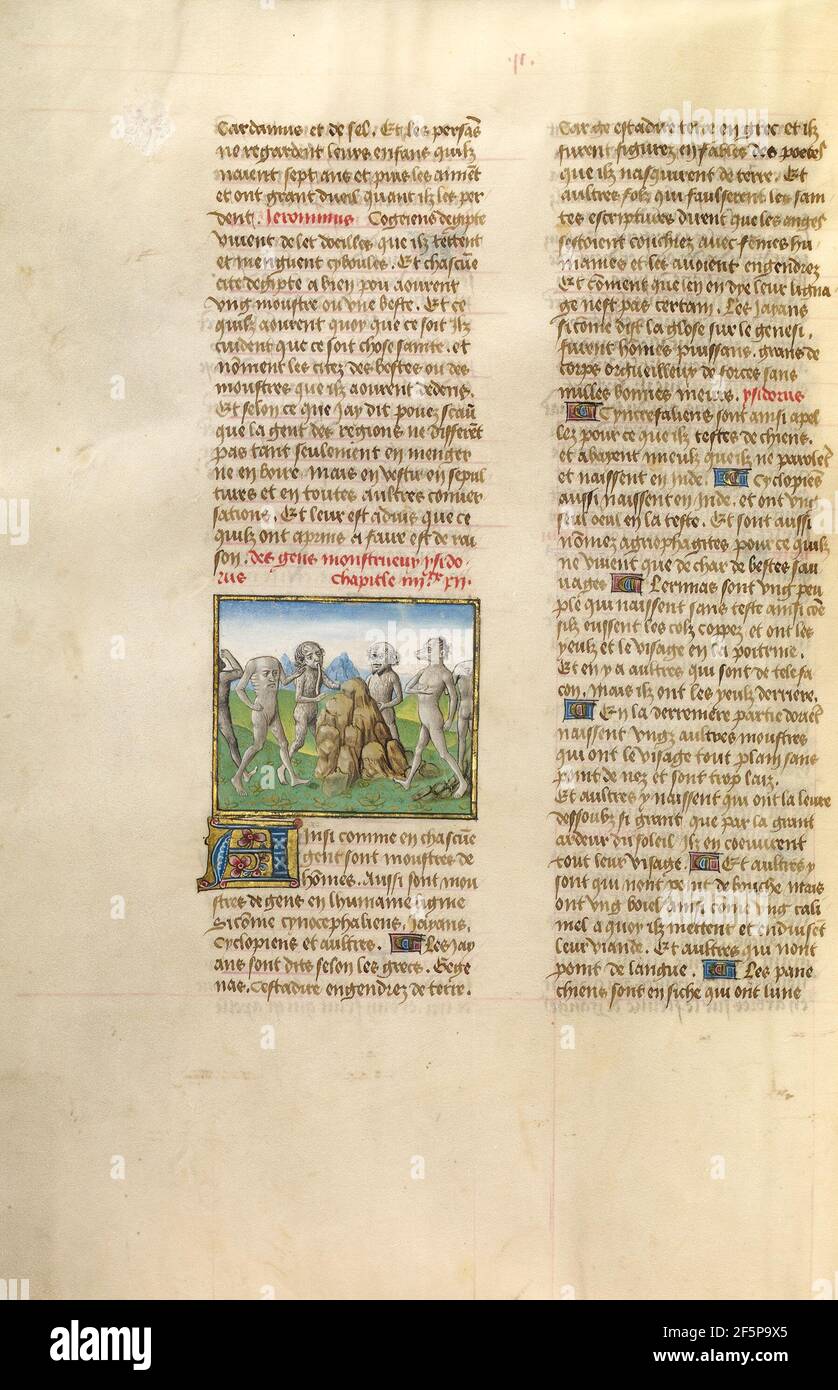 .II.
Cardamus et de sel. Et les persãs
ne regardent leurs enfans quilz
naient sept ans et puis les aimẽt
et ont grant dueil quant ilz les per
dent. Jeronimus Cogciens degipte
vivent de let doeilles que ilz tettent
et menguent cyboules. Et chascũe
cite degipte a bien pou aourent
vng monstre ou vne beste. Et ce
quilz aourent quoy que ce soit ilz
cuident que ce soit chose sainte. et
nõment les citez des bestes ou des
monstres que ilz aourent dedens.
Et selon ce que jay dit pouez scau
que la gent des regions ne differẽt
pas tant seulement en menger
ne en boire. mais en vestir en sepul
tures et en toutes aultres conuer
sations. Et leur est aduis que ce
quilz ont aprins a faire est de rai
son. des gens monstrueux ysido-
rus Chapitle iiij.xx xii.
Ainsi comme en chascũe
gent sont monstres de
hõmes. Aussi sont mon
stres de gens en lhumaine ligne
Sicõme cynocephaliens, Jayans,
Cyclopiens et aultres. Les Jay
ans sont dits selon les grecs. Gege
nas. Cestadire engendrez de terre.
Car ge estadire terre en grec et ilz
furent figurez en fables des poetes
que ilz nasquirent de terre. Et
aultres folz qui faulserent les sain
tes escriptures dirent que les anges
sestoient couchiez auec fẽmes hu
maines et les auoient engendrez
Et cõment que len en dye leur ligna
ge nest pas certain. Les Jayans
sicõme dist la glose sur le genesi.
furent hõmes puissans. grans de
corps orgueilleux de forces sans
nulles bonnes meurs. ysidorus
Cyncrefaliens sont ainsi apel
lez pour ce que ilz testes de chiens.
et abayent mieulx que ilz ne parolẽt
et naissent en Inde. Cyclopiẽs
aussi naissent en Inde. et ont vng
seul oeul en la teste. Et sont aussi
nõmez agriophagites pour ce quilz
ne viuent que de char de bestes sau
uages Lermas sont vng peu
ple qui naissent sans teste ainsi cõe
silz eussent les colz coppez et ont les
yeulx et le visage en la poitrine.
Et en y a aultres qui sont de tele fa
con. mais ilz ont les yeulx derriere.
En la derreniere partie dorient
naissent vngz aultres monstres
qui ont le visage tout plain sans
point de nez et sont trop laiz.
Et aultres y naissent qui ont la leure
dessoubz si grant que par la grant
ardeur du soleil ilz en coeuurent
tout leur visage. Et aultres y
sont qui nont point de bouche mais
ont vng boiel ainsi come vng cali
mel a quoy ilz mettent et enduisẽt
leur viande. Et aultres qui nont
point de langue. Les pane
chiens sont en siche qui ont lune
alamy
Image ID: 2F5P9X5
www.alamy.com